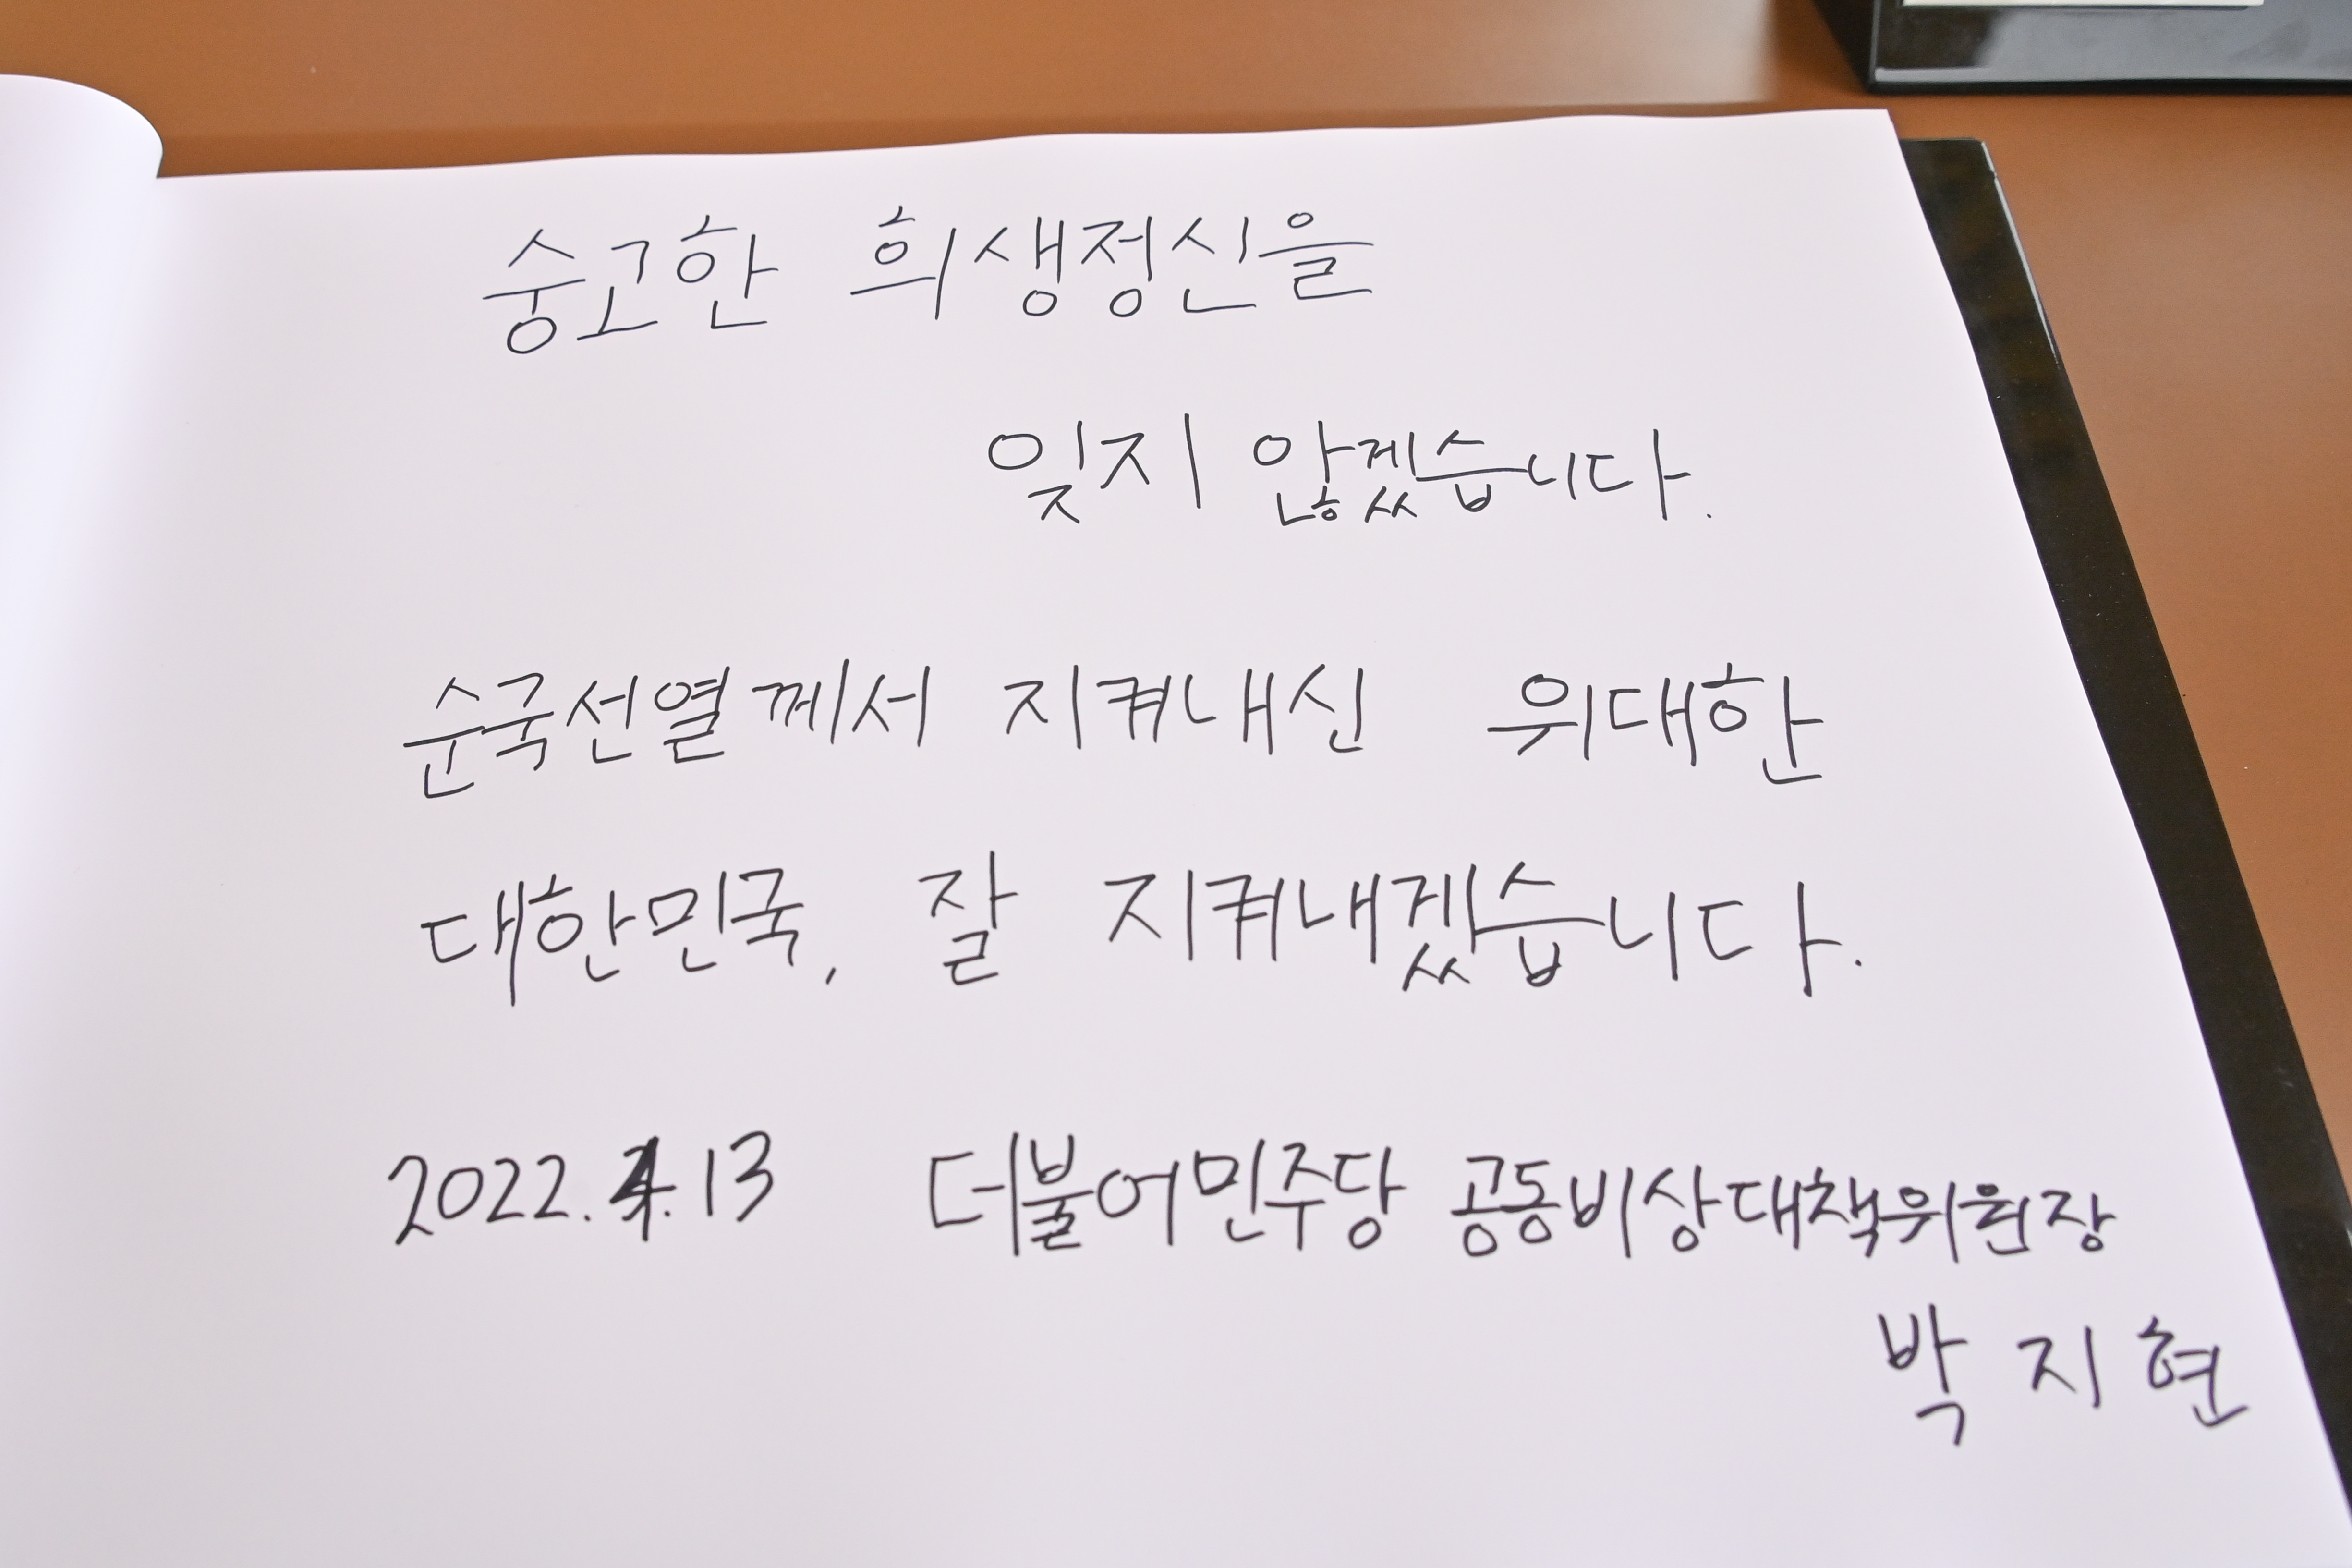 숭고한 희생정신을
잊지 않겠습니다.
순국선열께서 지켜내신 위대한
대한민국, 잘 지켜내겠습니다.
2022.4.13 더불어민주당 공동비상대책위원장
박지현